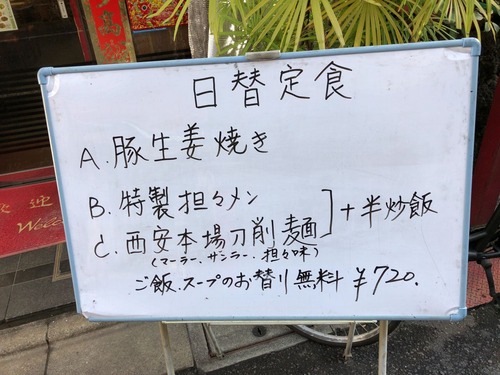 日替定食
A.豚生姜焼き
B.特製担々メン
C.西安本場刀削麺
(マーラー、サンラー、担々味)
+半炒飯
ご飯.スープのお替り無料 ¥720.
迎
Wel